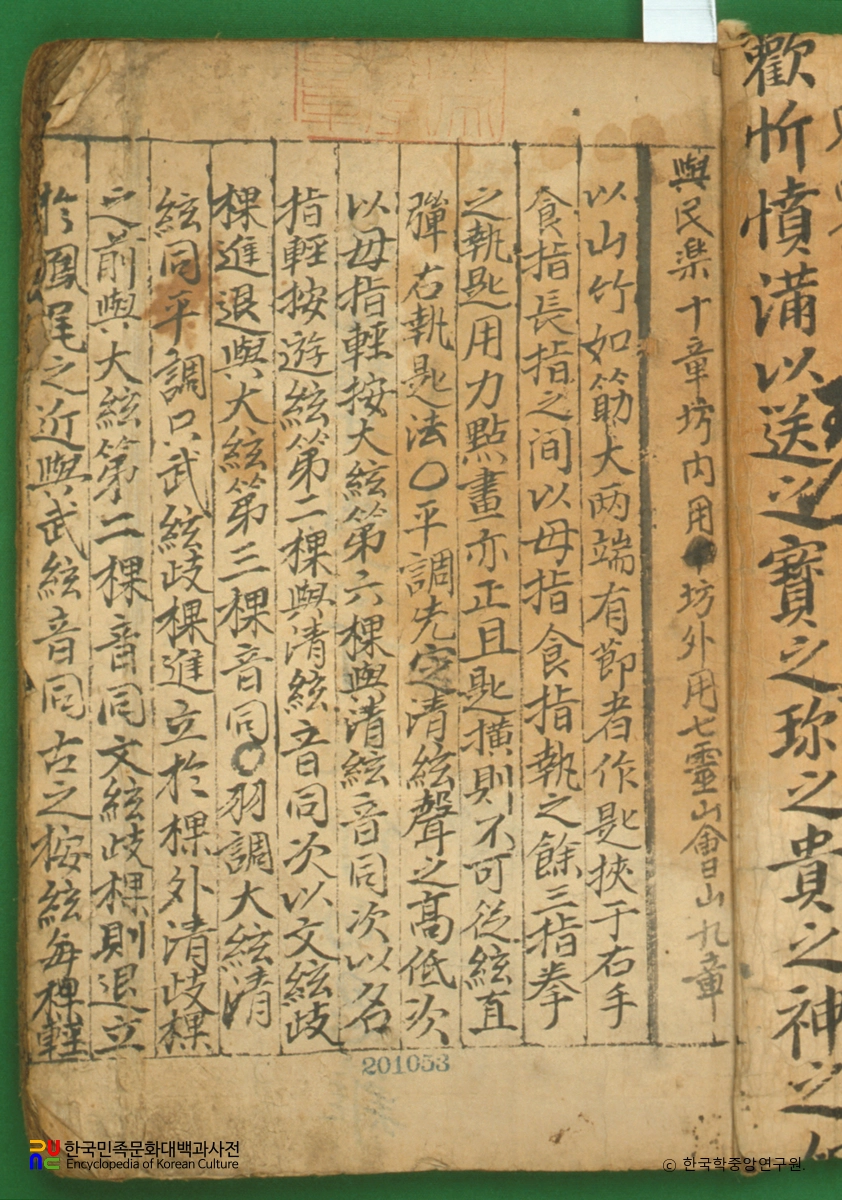 歡忻憤滿以送之寶之珎之貴之神之
與民楽十章坊内用 坊外用七靈山會山九章
以山竹如筯大两端有節者作匙挾于右手
食指長指之间以母指食指執之餘三指拳
之執匙用力點畫亦正且匙横則不可從絃直
彈右執匙法〇平調先定清絃聲之高低次
以母指輕按大絃第六棵與清絃音同次以名
指輕按遊絃第二棵與清絃音同次以文絃歧
棵進退與大絃第三棵音同〇羽調大絃清
絃同平調只武絃歧棵進立於棵外清歧棵
之前與大絃第二棵音同文絃歧棵則退立
於鳳尾之近與武絃音同古之按絃每棵輕
201053
한국민족문화대백과사전
Encyclopedia of Korean Culture
© 한국학중앙연구원.